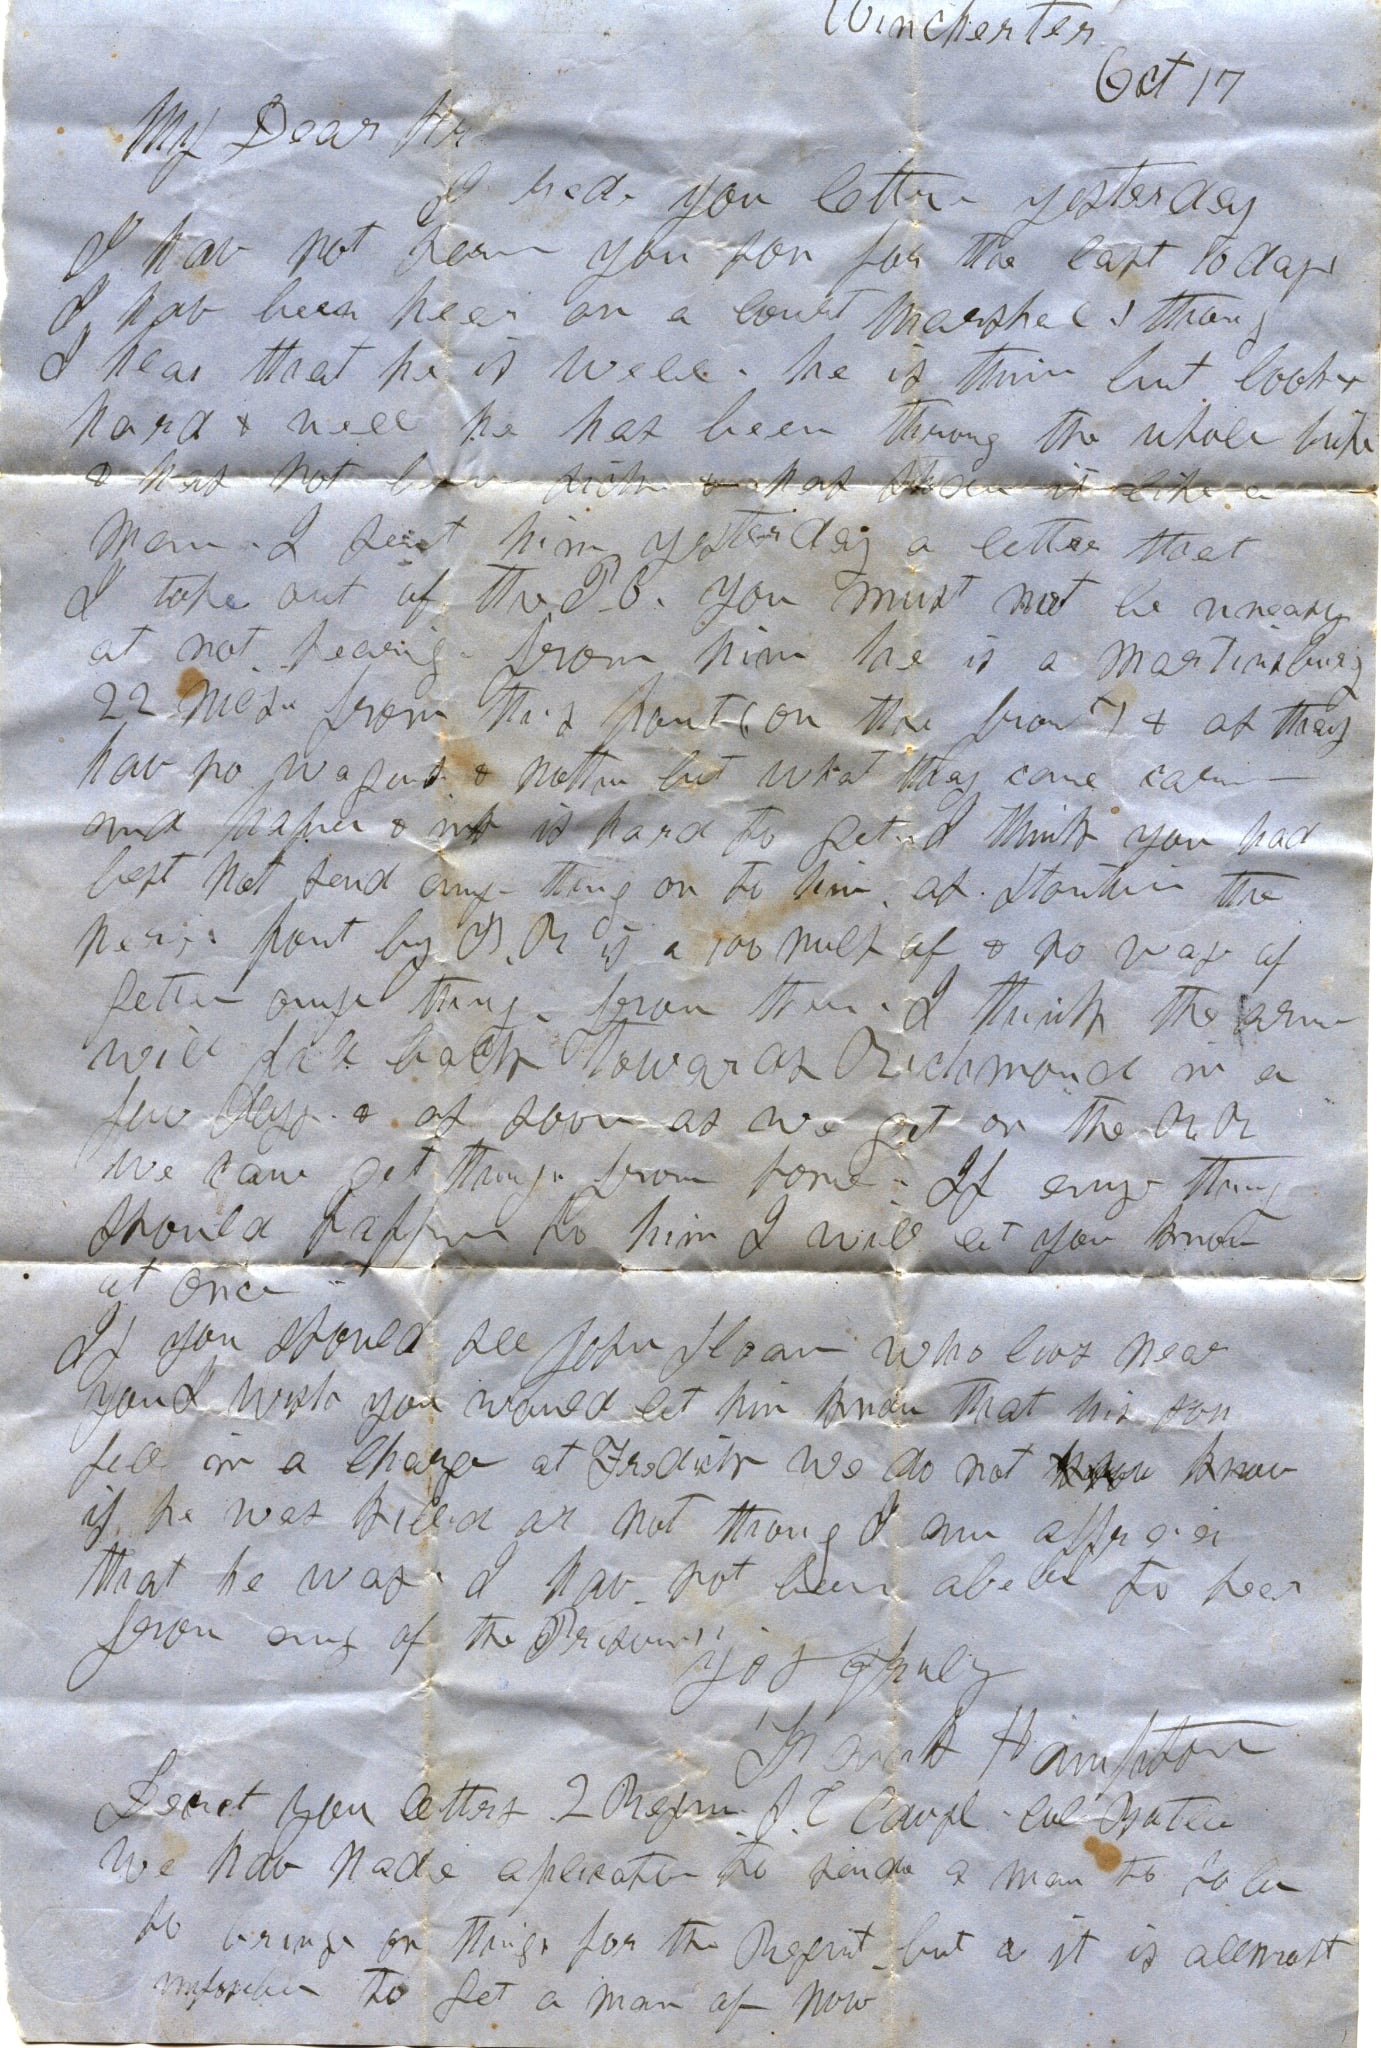 Winchester
Oct 17
My Dear Sir
I recd. you letter yesterday
I hav not seen you son for the last 10 days
I hav been heer on a court Marshel & thoug
I hear that he is well. he is thin but looks
hard & well he has been throug the whole
& has not been sick & has it like a
man. I sent him yesterday a letter that
I toke out of the P.O. you must not be uneasy
at not hearing from him he is a Martinsburg
22 Miles from this pont (on the front) & as they
hav no wagons & nothin but what they cane
and paper & ink is hard to get. I think you had
best not send eny thing on to him. as Stanton the
pont by R.R is a 100 miles of & no way of
getten enye thing from ther. I think the arme
will fall back towards Richmond in a
few days. & as soon as we get on the R.R
we cane get things from home. If enye thing
should happen to him I will let you know
at once
If you should see John Sloan who livs near
you I wish you would let him know that his son
fell in a charge at Fredick we do not know
if he was killed or not thoug I am
that he was. I hav not been to heer
from eny of the Prisoners
Yos Truly
Frank Hampton
you letters 2 Regm. S.C Cavl Col Butler
We hav made to sende a man to
to bringe on things for the Regmt but a it is allmost
to get a man of now